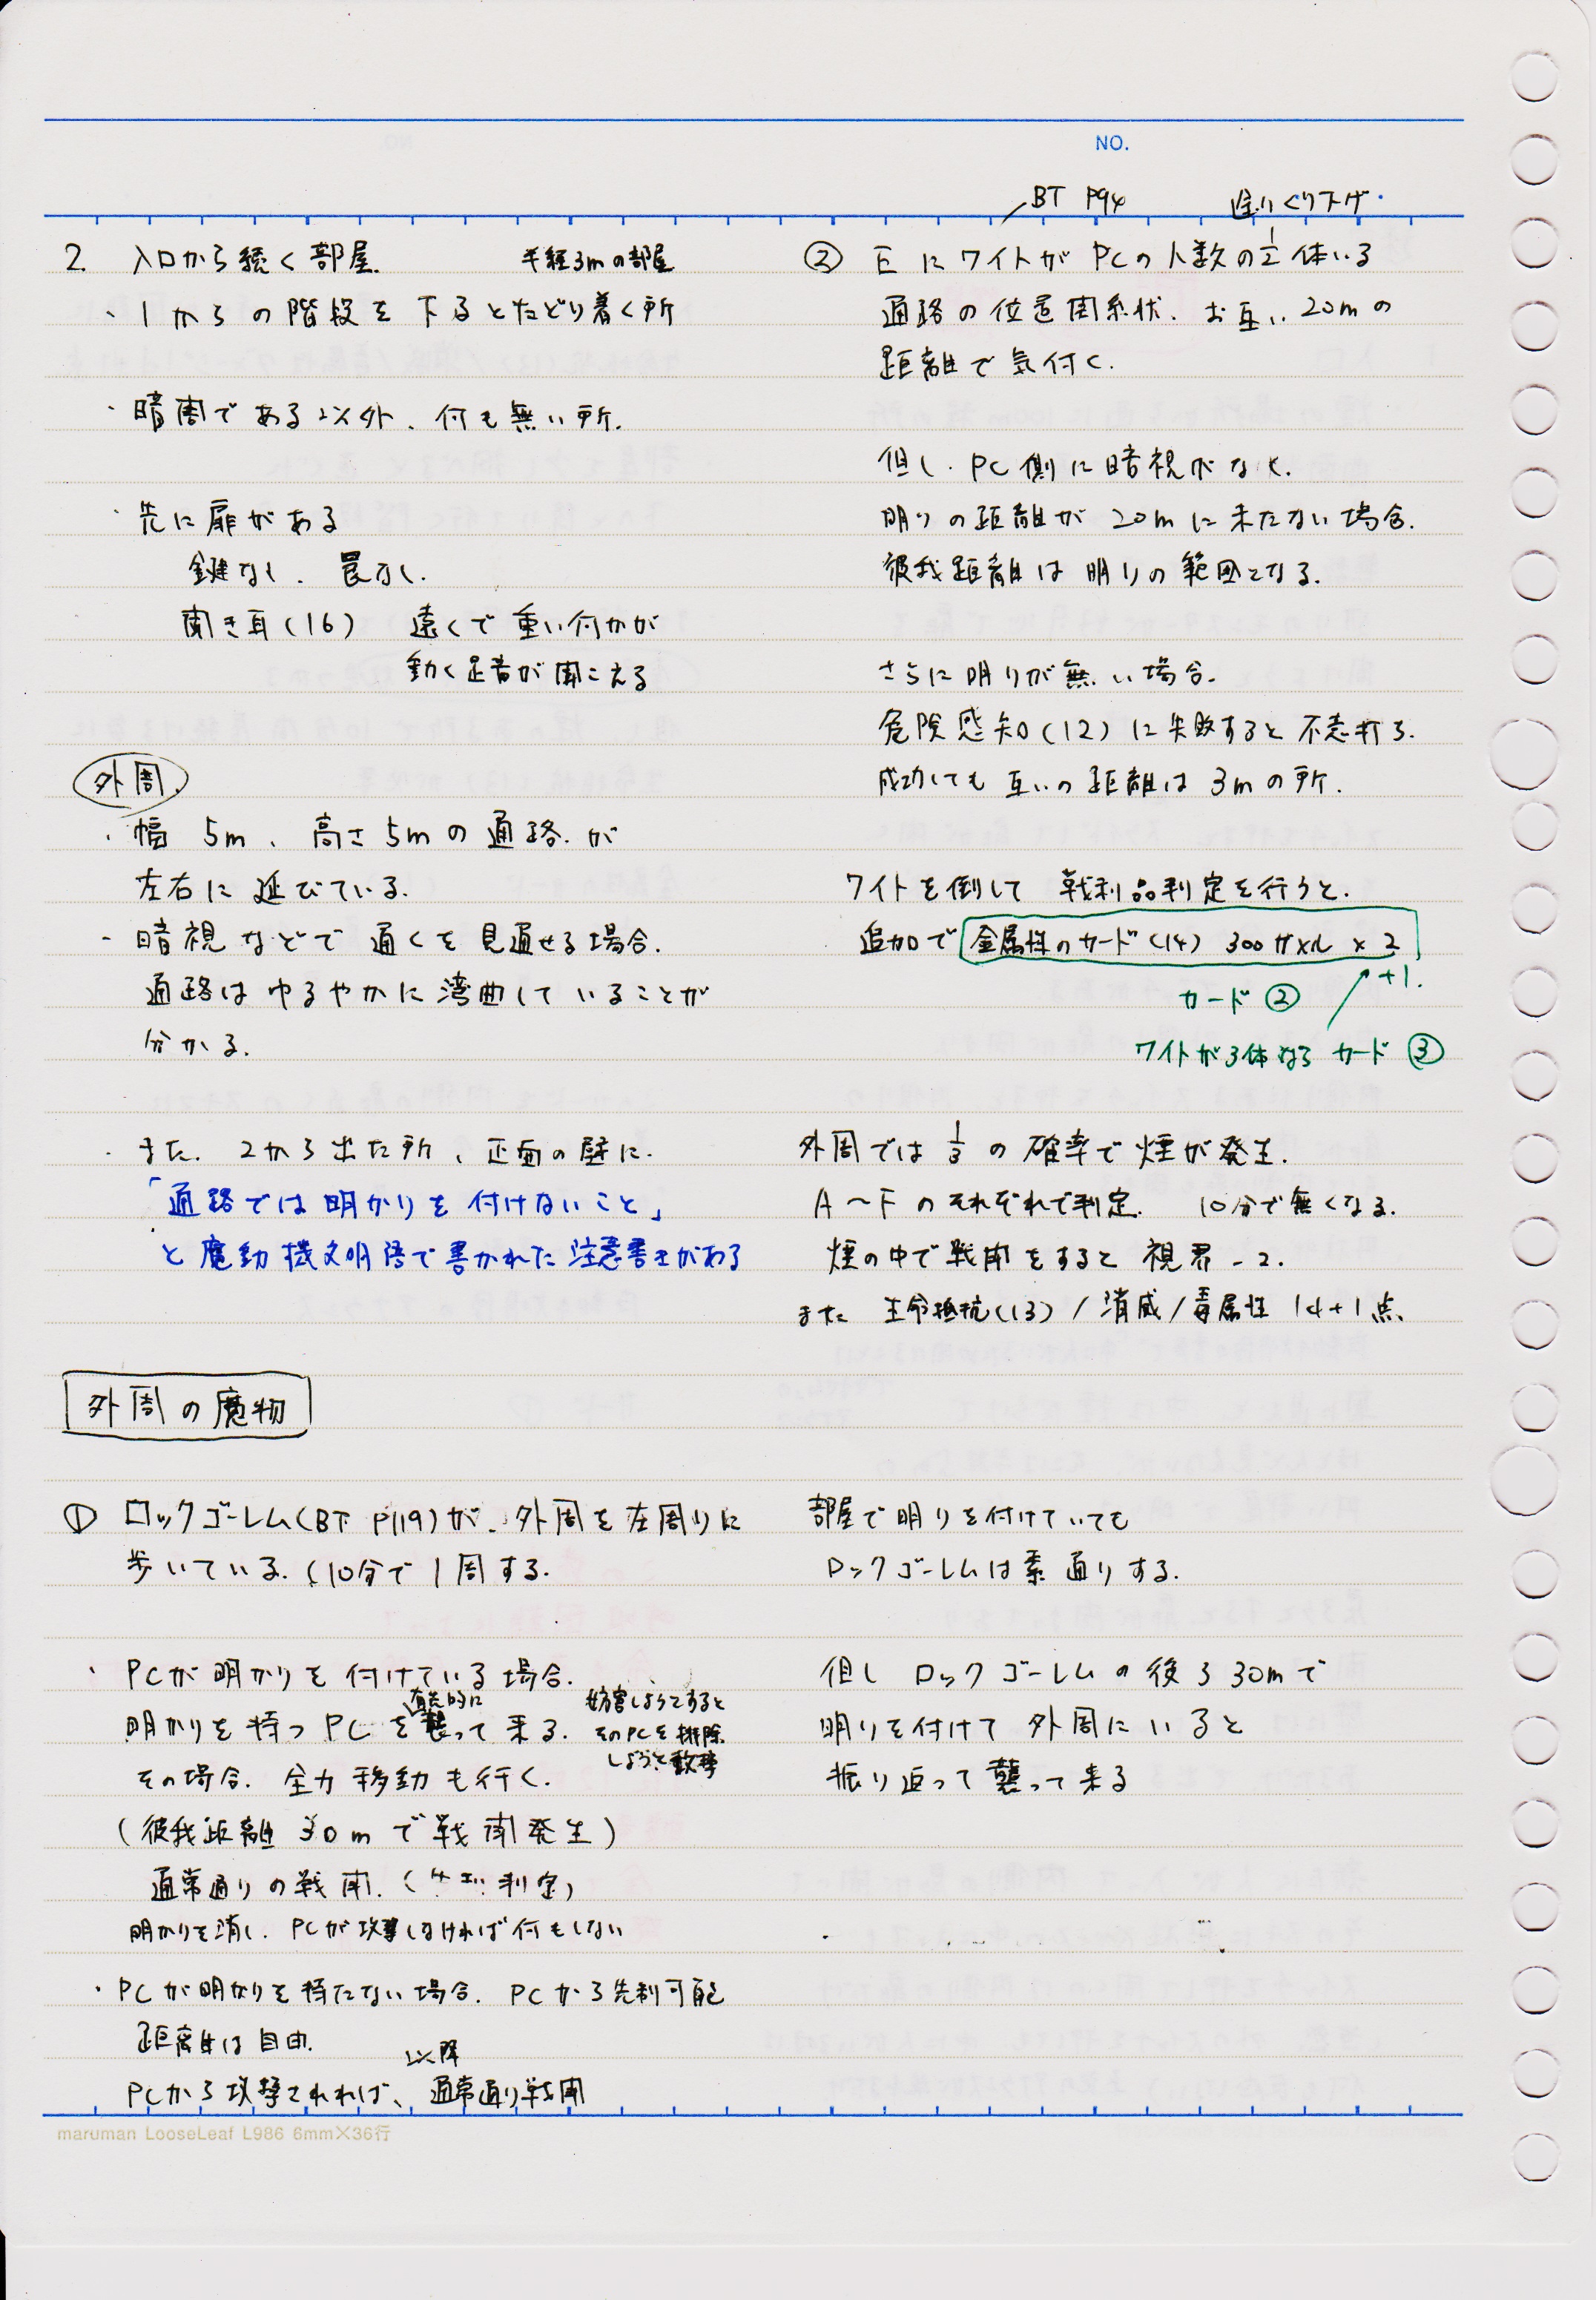 NO.
2. 入口から続く部屋. 半径3mの部屋
・1からの階段を下るとたどり着く所
・暗闇である以外、何も無い所.
・先に扉がある
鍵なし、罠なし.
聞き耳(16) 遠くで重い何かが
動く足音が聞こえる
外周
・幅 5m、高さ5mの通路.が
左右に延びている.
・暗視などで遠くを見通せる場合.
通路はゆるやかに湾曲していることが
分かる.
・また、2から出た所、正面の壁に.
「通路では明かりを付けないこと」
と魔動機文明語で書かれた注意書きがある
外周の魔物
① ロックゴーレム(BT P119)が、外周を左周りに
歩いている.(10分で1周する.
・PCが明かりを付けている場合.
優先的に
明かりを持つPCを襲って来る.
妨害しようとすると
そのPCを排除
しようと攻撃
その場合、全力移動も行く.
(彼我距離 30mで戦闘発生)
通常通りの戦闘.( 判定)
明かりを消し、PCが攻撃しなければ何もしない
・PCが明かりを持たない場合. PCから先制可能
距離は自由.
以降
PCから攻撃されれば、通常通り戦闘
BT P94 くり下げ.
② EにワイトがPCの人数の1/2体いる
通路の位置関係状、お互い、20mの
距離で気付く.
但し、PC側に暗視がなく、
明りの距離が20mに未たない場合.
彼我距離は明りの範囲となる.
さらに明りが無い場合.
危険感知(12)に失敗すると不意打ち.
成功しても互いの距離は3mの所.
ワイトを倒して戦利品判定を行うと.
追加で 金属性のカード(14) 300ガメル×2
+1.
カード②
ワイトが3体なら カード③
外周では1/3の確率で煙が発生.
A〜Fのそれぞれで判定. 10分で無くなる.
煙の中で戦闘をすると視界-2.
また 生命抵抗(13)/消滅/毒属性 1d+1点
部屋で明りを付けていても
ロックゴーレムは素通りする.
但し ロックゴーレムの後ろ30mで
明りを付けて外周にいると
振り返って襲って来る
maruman LooseLeaf L986 6mm×36行